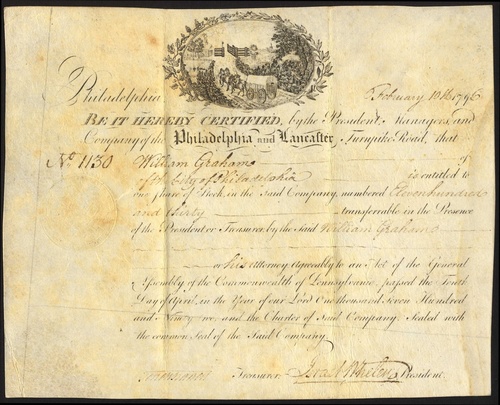 Philadelphia February 10th 1796
BE IT HEREBY CERTIFIED, by the President, Managers, and
Company of the Philadelphia and Lancaster Turnpike Road, that
No. 1130 William Grahame
of the City of Philadelphia is entitled to
one Share of Stock in the said Company, numbered Eleven hundred
and thirty transferrable in the Presence
of the President or Treasurer, by the Said William Grahame
or his Attorney Agreeably to an Act of the General
Assembly of the Commonwealth of Pennsylvania, passed the
Day of April, in the Year of our Lord One thousand Seven Hundred
and and the Charter of Said Company. Sealed with
the common Seal of the Said Company.
Treasurer. Israel Whelen President.